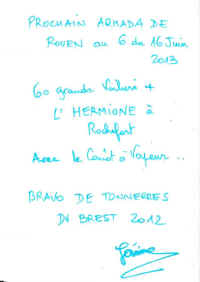 PROCHAIN ARMADA DE
ROUEN au 6 du 16 Juin
2013
60 grands Voiliers +
L'HERMIONE à
Rochefort
Avec le Canot à Vapeur ..
BRAVO DE TONNERRES
DU BREST 2012